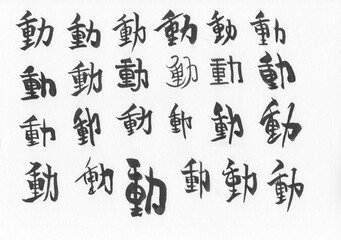 動動動動動動
動動動動動動
動動動動動動
動動動動動動